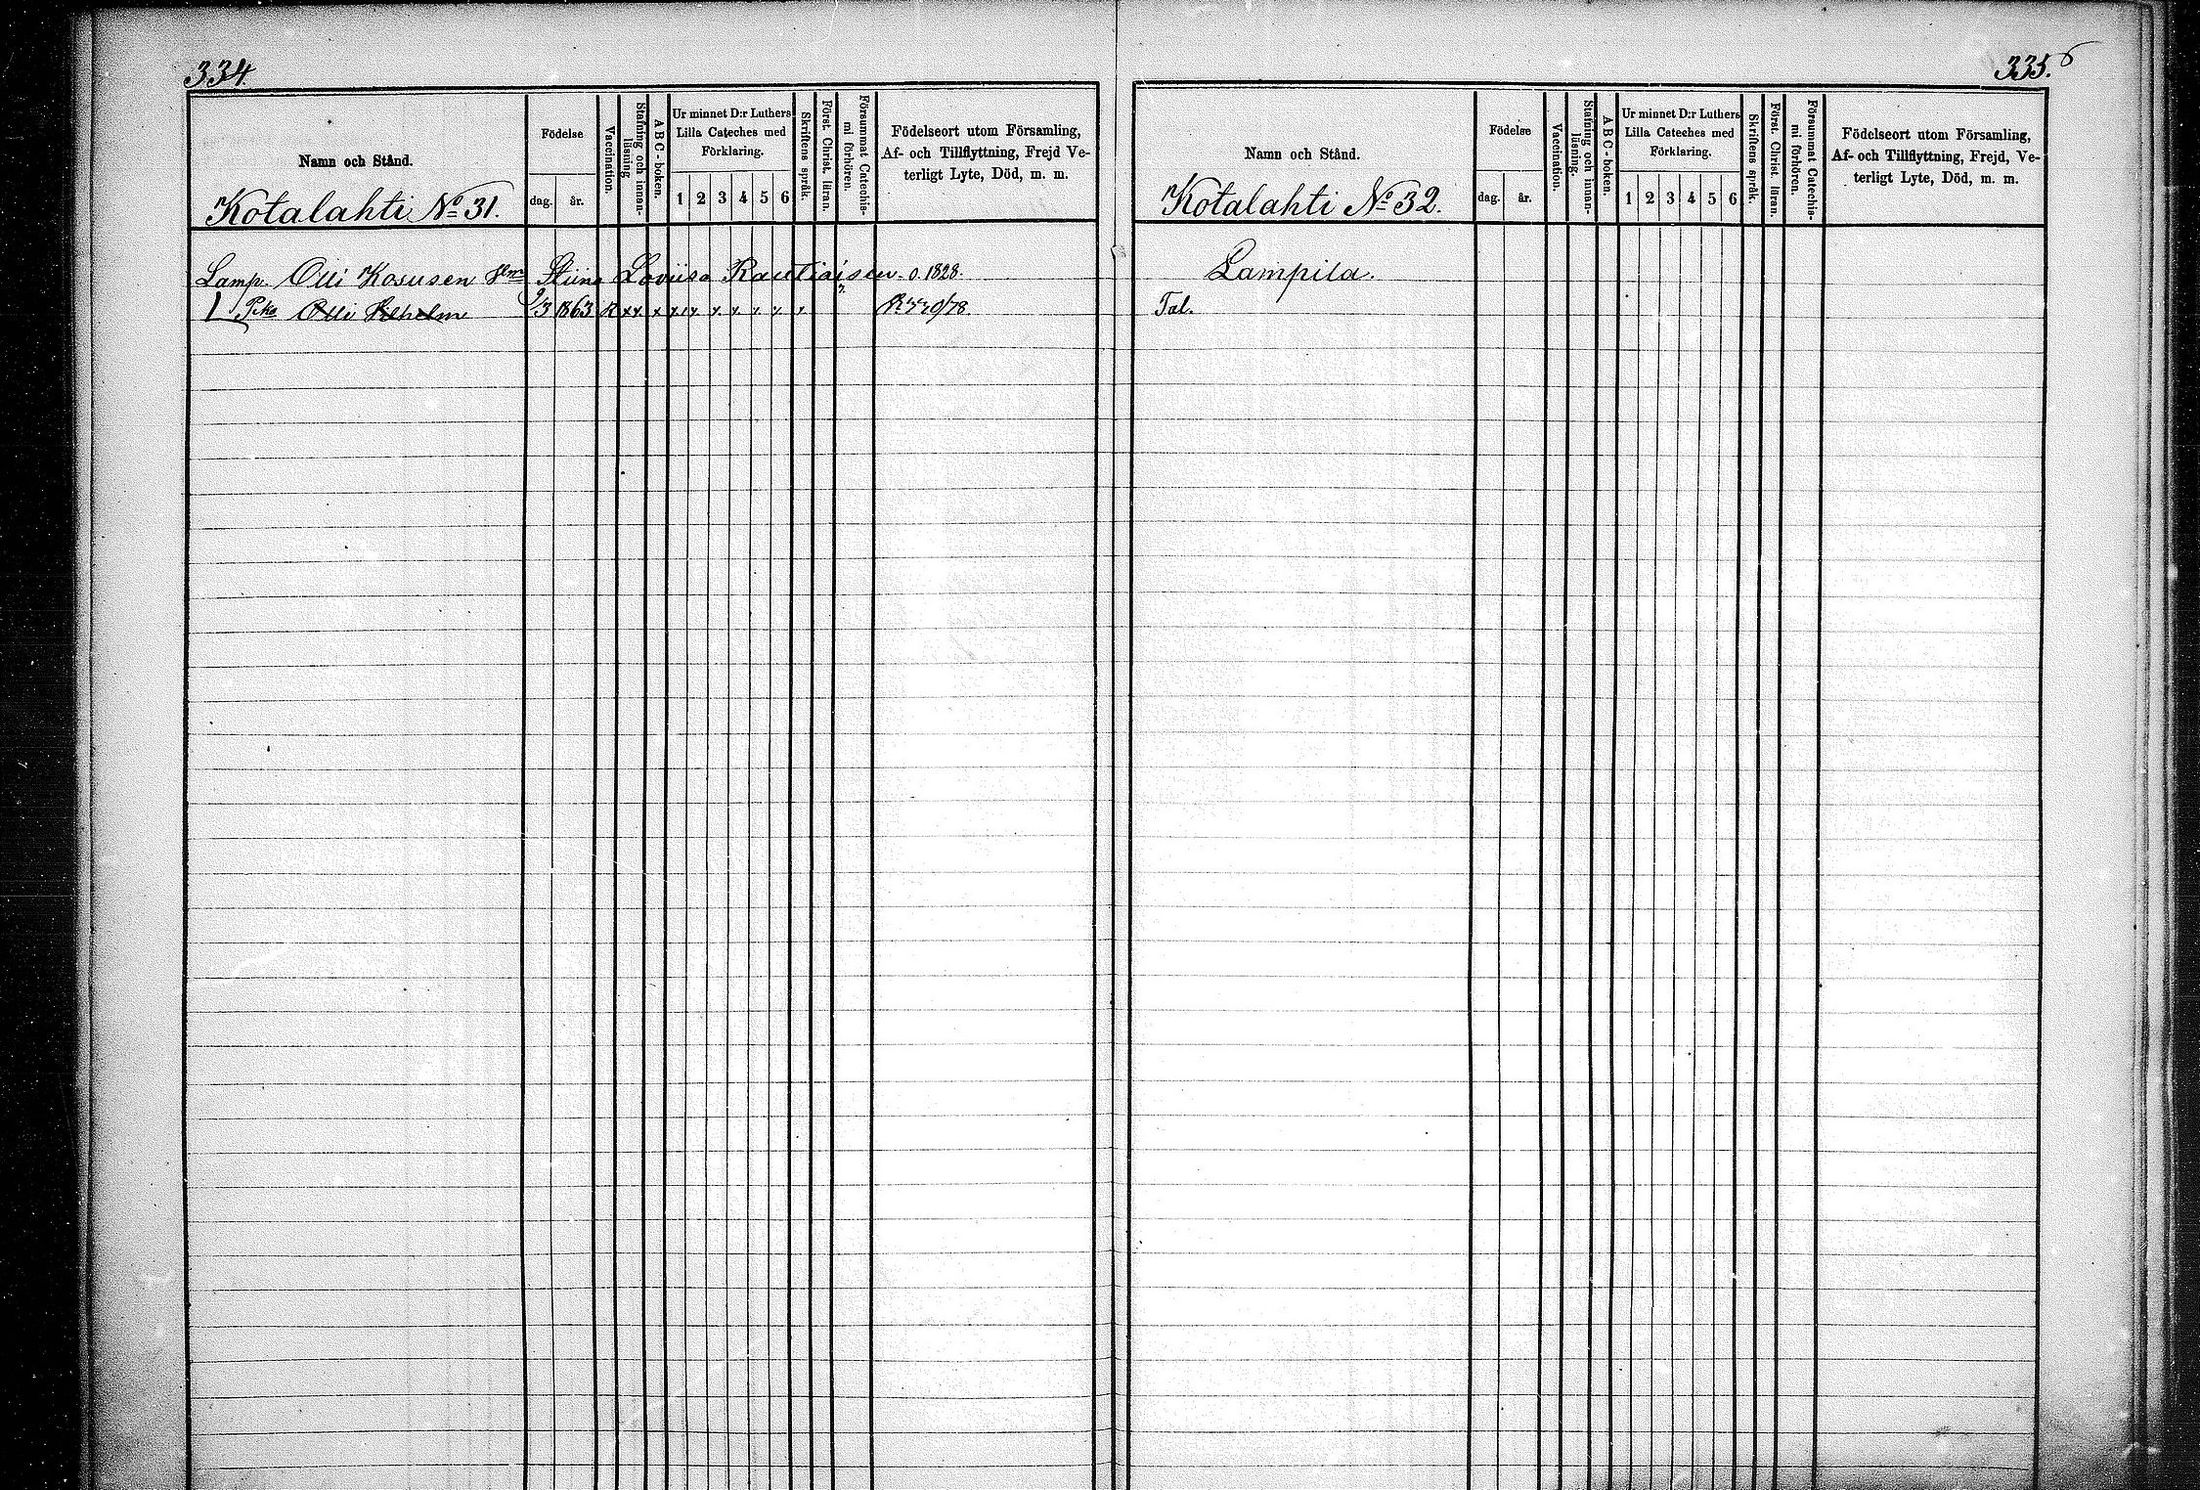 334.
Namn och Stånd.
Kotalahti No 31.
Födelse
dag.
år.
Vaccination.
Stafning och innan-
läsning
A B C - boken.
Ur minnet D:r Luthers
Lilla Cateches med
Förklaring.
1 2 3 4 5 6
Skriftens språk.
Först. Christ. läran.
Försummat Catechis-
mi förhören.
Födelseort utom Församling,
Af- och Tillflyttning, Frejd Ve-
terligt Lyte, Död, m. m.
Lamp. Olli Kosusen Stiina Loviisa Rautiaisen o. 1828.
Pka Olli 9/3 1863 R xx x
335.
Namn och Stånd.
Kotalahti No 32.
Födelse
dag.
år.
Vaccination.
Stafning och innan-
läsning.
A B C - boken.
Ur minnet D:r Luthers
Lilla Cateches med
Förklaring.
1 2 3 4 5 6
Skriftens språk.
Först. Christ. läran.
Försummat Catechis-
mi förhören.
Födelseort utom Församling,
Af- och Tillflyttning, Frejd, Ve-
terligt Lyte, Död, m. m.
Lampila.
Tal.